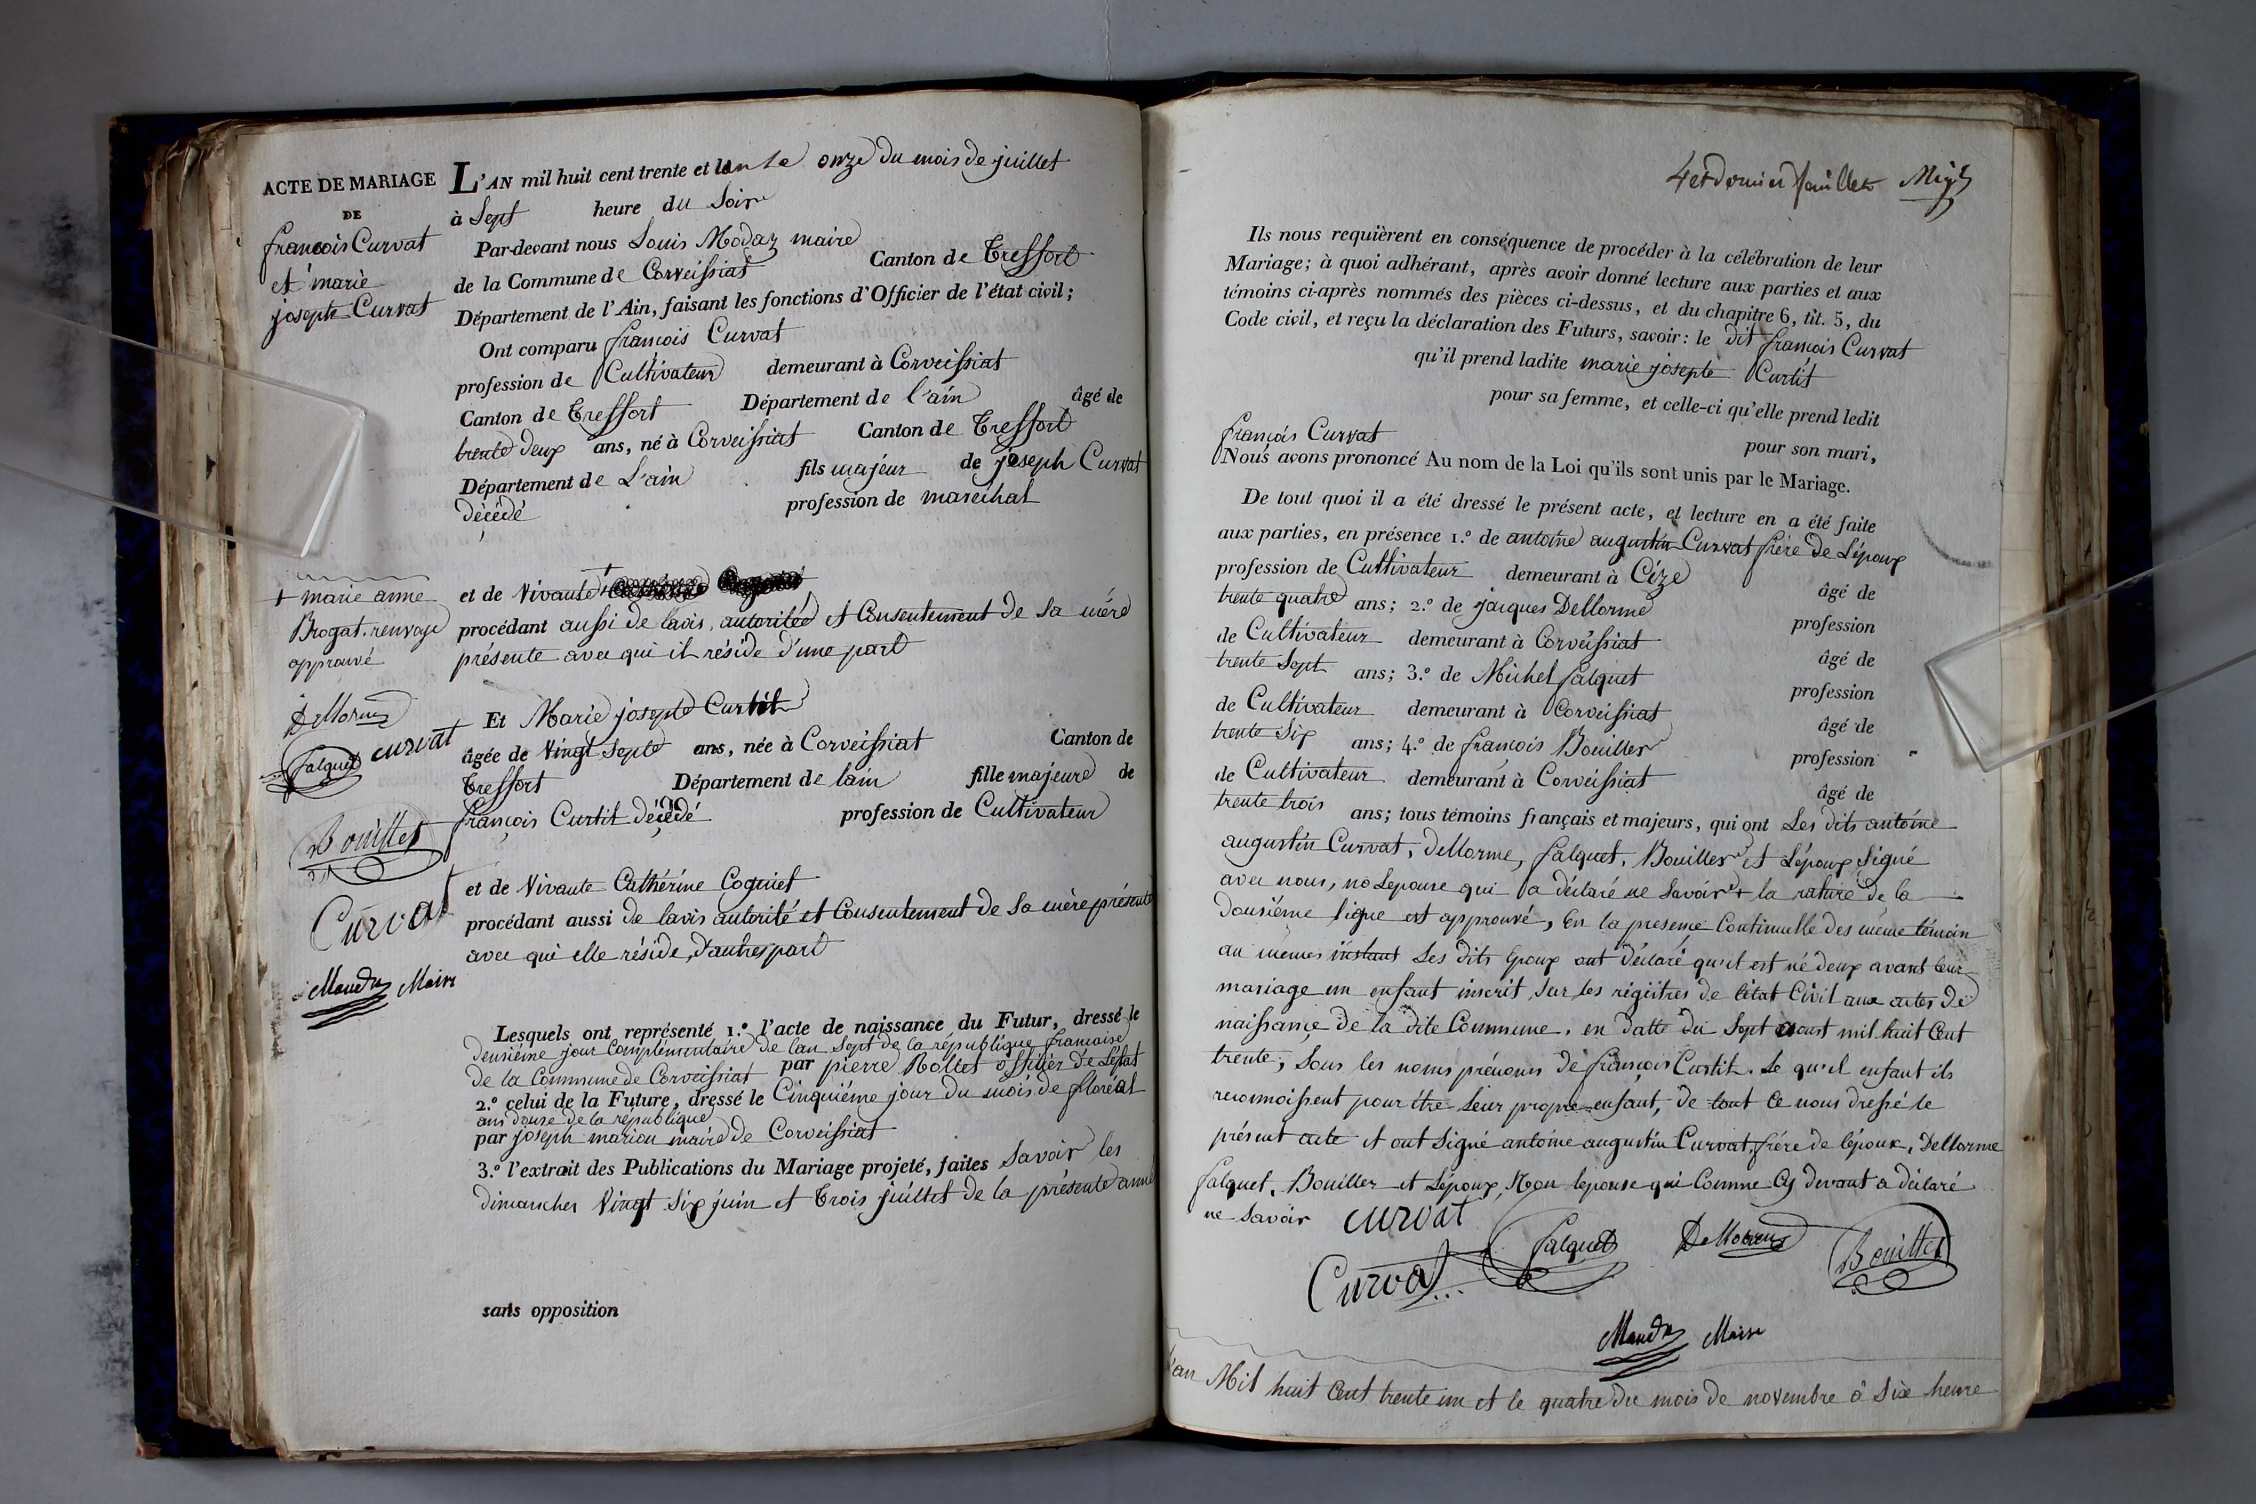 ACTE DE MARIAGE
DE
françois Curvat
et marie
josepte Curvat
L'AN mil huit cent trente et un le onze du mois de juillet
à Sept heure du Soir
Par-devant nous Louis Modaz maire
de la Commune de Corveissiat Canton de Treffort
Département de l'Ain, faisant les fonctions d'Officier de l'état civil;
Ont comparu françois Curvat
profession de Cultivateur demeurant à Corveissiat
Canton de Treffort Département de l'ain âgé de
trente deux ans, né à Corveissiat Canton de Treffort
Département de L'ain fils majeur de joseph Curvat
décédé profession de maréchal
+ marie anne
Brogat. renvoye
approuvé
Dellorme
falquet curvat
Bouiller
Curvat
Maire
et de Vivante +
procédant aussi de lavis, autoritée et Consentement de sa mére
présente avec qui il réside d'une part
Et Marie josepte Curtit
âgée de Vingt Septe ans, née à Corveissiat Canton de
Treffort Département de lain fille majeure de
françois Curtit décédé profession de Cultivateur
et de Vivante Cathérine Coquet
procédant aussi de lavis autorité et Consentement de sa mère présente
avec qui elle réside, d'autres part
Lesquels ont représenté 1.° l'acte de naissance du Futur, dressé le
deusiéme jour Complémentaire de lan Sept de la république francaise
de la Commune de Corveissiat par pierre Rollet officier de L'état
2.° celui de la Future, dressé le Cinquiéme jour du mois de floréal
ans douse de la république
par joseph marion maire de Corveissiat
3.° l'extrait des Publications du Mariage projeté, faites Savoir les
dimanches Vingt Six juin et Trois juillet de la présente anné
sans opposition
4 et dernier feuillet
Ils nous requièrent en conséquence de procéder à la célébration de leur
Mariage; à quoi adhérant, après avoir donné lecture aux parties et aux
témoins ci-après nommés des pièces ci-dessus, et du chapitre 6, tit. 5, du
Code civil, et reçu la déclaration des Futurs, savoir: le dit françois Curvat
qu'il prend ladite marie josepte Curtit
pour sa femme, et celle-ci qu'elle prend ledit
françois Curvat pour son mari,
Nous avons prononcé Au nom de la Loi qu'ils sont unis par le Mariage.
De tout quoi il a été dressé le présent acte, et lecture en a été faite
aux parties, en présence 1.° de antoine augustin Curvat frére de L'époux
profession de Cultivateur demeurant à Cize âgé de
trente quatre ans; 2.° de jacques Dellorme profession
de Cultivateur demeurant à Corveissiat âgé de
trente Sept ans; 3.° de Michel falquet profession
de Cultivateur demeurant à Corveissiat âgé de
trente Six ans; 4.° de françois Bouiller profession
de Cultivateur demeurant à Corveissiat âgé de
trente trois ans; tous témoins français et majeurs, qui ont Les dits antoine
augustin Curvat, dellorme, falquet, Bouiller et L'époux Signé
avec nous, no Lepouse qui a déclaré ne Savoir + la rature de la
dousiéme ligne est approuvé, En la presense Continuelle des même témoin
au mêmes instant Les dits Epoux ont déclaré qu'il est né deux avant leur
mariage un enfant inscrit, sur les régistres de l'état Civil aux actes de
naissançe de la dite Commune, en datte du Sept aoust mil huit Cent
trente; Sous les noms prénoms de françois Curtit. Le qu'el enfant ils
reconnoissent pour être Leur propre enfant, de tout Ce nous dressé le
présent acte et ont Signé antoine augustin Curvat, frére de lépoux, Dellorme
falquet, Bouiller et L'époux, Non lepouse qui Comme Cy devant a déclaré
ne Savoir curvat
Curvat falquet Dellorme Bouiller
Maire
l'an Mil huit Cent trente un et le quatre du mois de novembre à Six heure